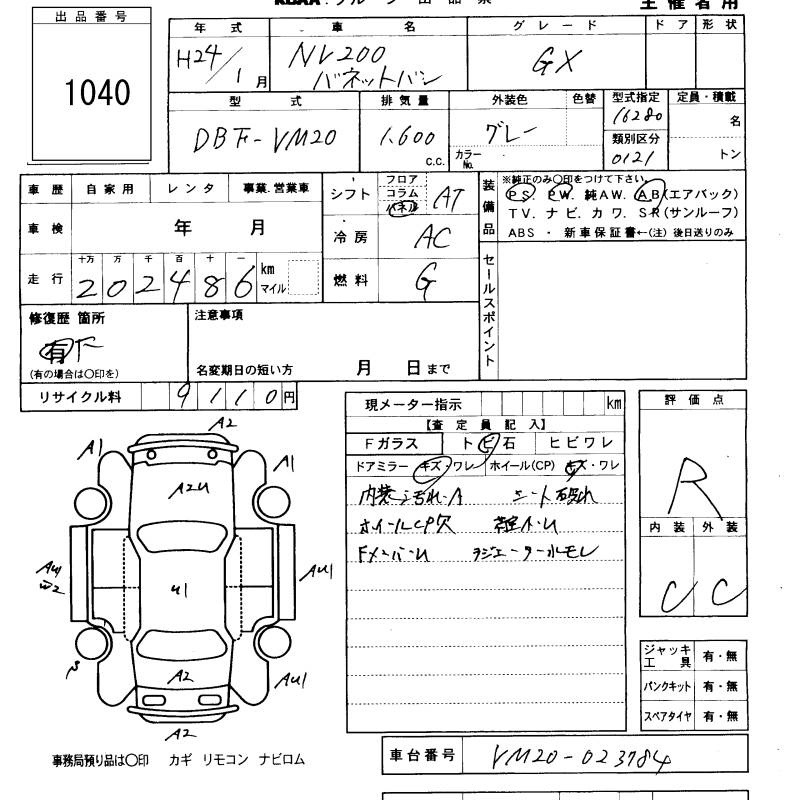 出品番号
1040
年式 車名 グレード ドア 形状
H24/1月 NV200 バネットバン GX
型式 排気量 外装色 色替 型式指定 定員・積載
DBF-VM20 1,600 c.c. グレー カラーNo. 16280 名
類別区分 0121 トン
車歴 自家用 レンタ 事業.営業車
車検 年 月
走行 十万 万 千 百 十 一
202486 km マイル
シフト フロア コラム パネル AT
冷房 AC
燃料 G
装備品
※純正のみ○印をつけて下さい。
PS. PW. 純AW. AB(エアバック)
TV. ナビ. カワ. SR(サンルーフ)
ABS ・ 新車保証書←(注)後日送りのみ
セールスポイント
修復歴 箇所
有
(有の場合は○印を)
注意事項
名変期日の短い方 月 日まで
リサイクル料 9110円
現メーター指示 km
【査定員記入】
Fガラス トビ石 ヒビワレ
ドアミラー キズ・ワレ ホイール(CP) キズ・ワレ
内装汚れ・A シート破れ
ホイールCP欠
Fメンバーu ラジエーター水モレ
評価点
R
内装 外装
C C
ジャッキ工具 有・無
パンクキット 有・無
スペアタイヤ 有・無
A2
A1 A1
A2U
AU W2 U1 AU1
A2 AU1
A2
事務局預り品は○印 カギ リモコン ナビロム
車台番号 VM20-023784